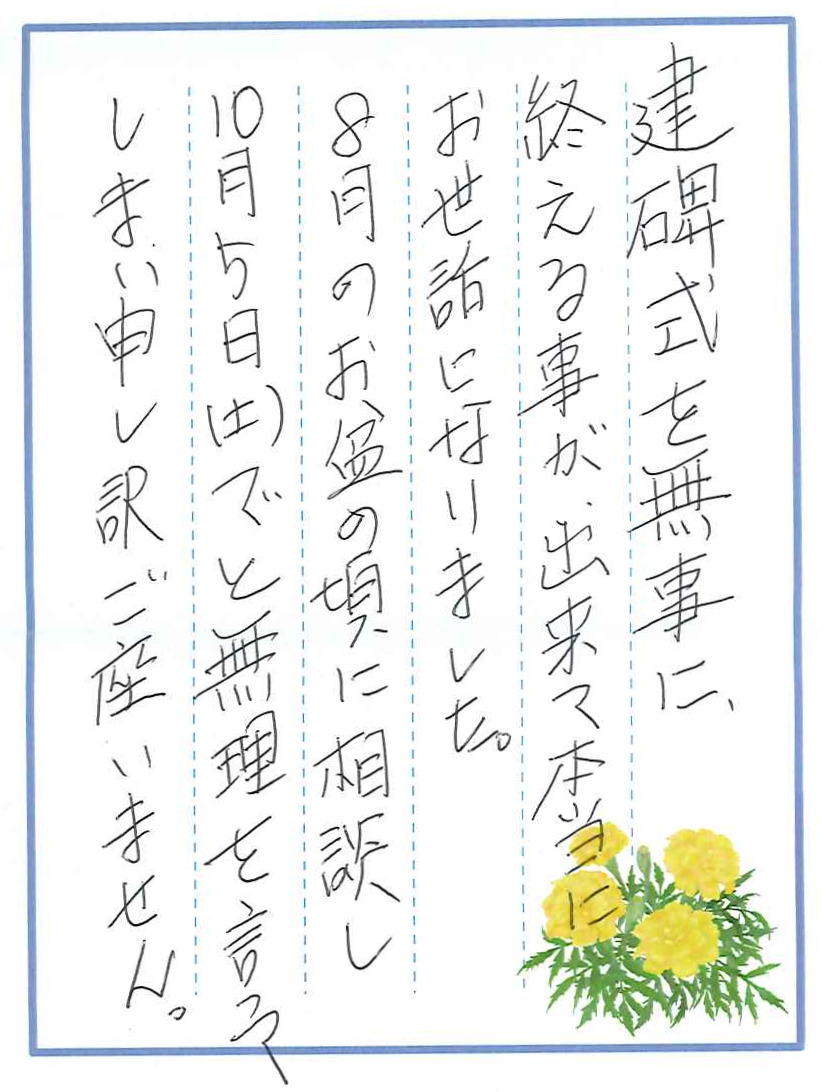 建碑式を無事に、
終える事が、出来て本当に
お世話になりました。
8月のお盆の頃に相談し
10月5日(土)でと無理を言って
しまい申し訳ご座いません。